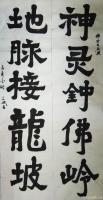 神灵钟佛岭
地脉接龍坡